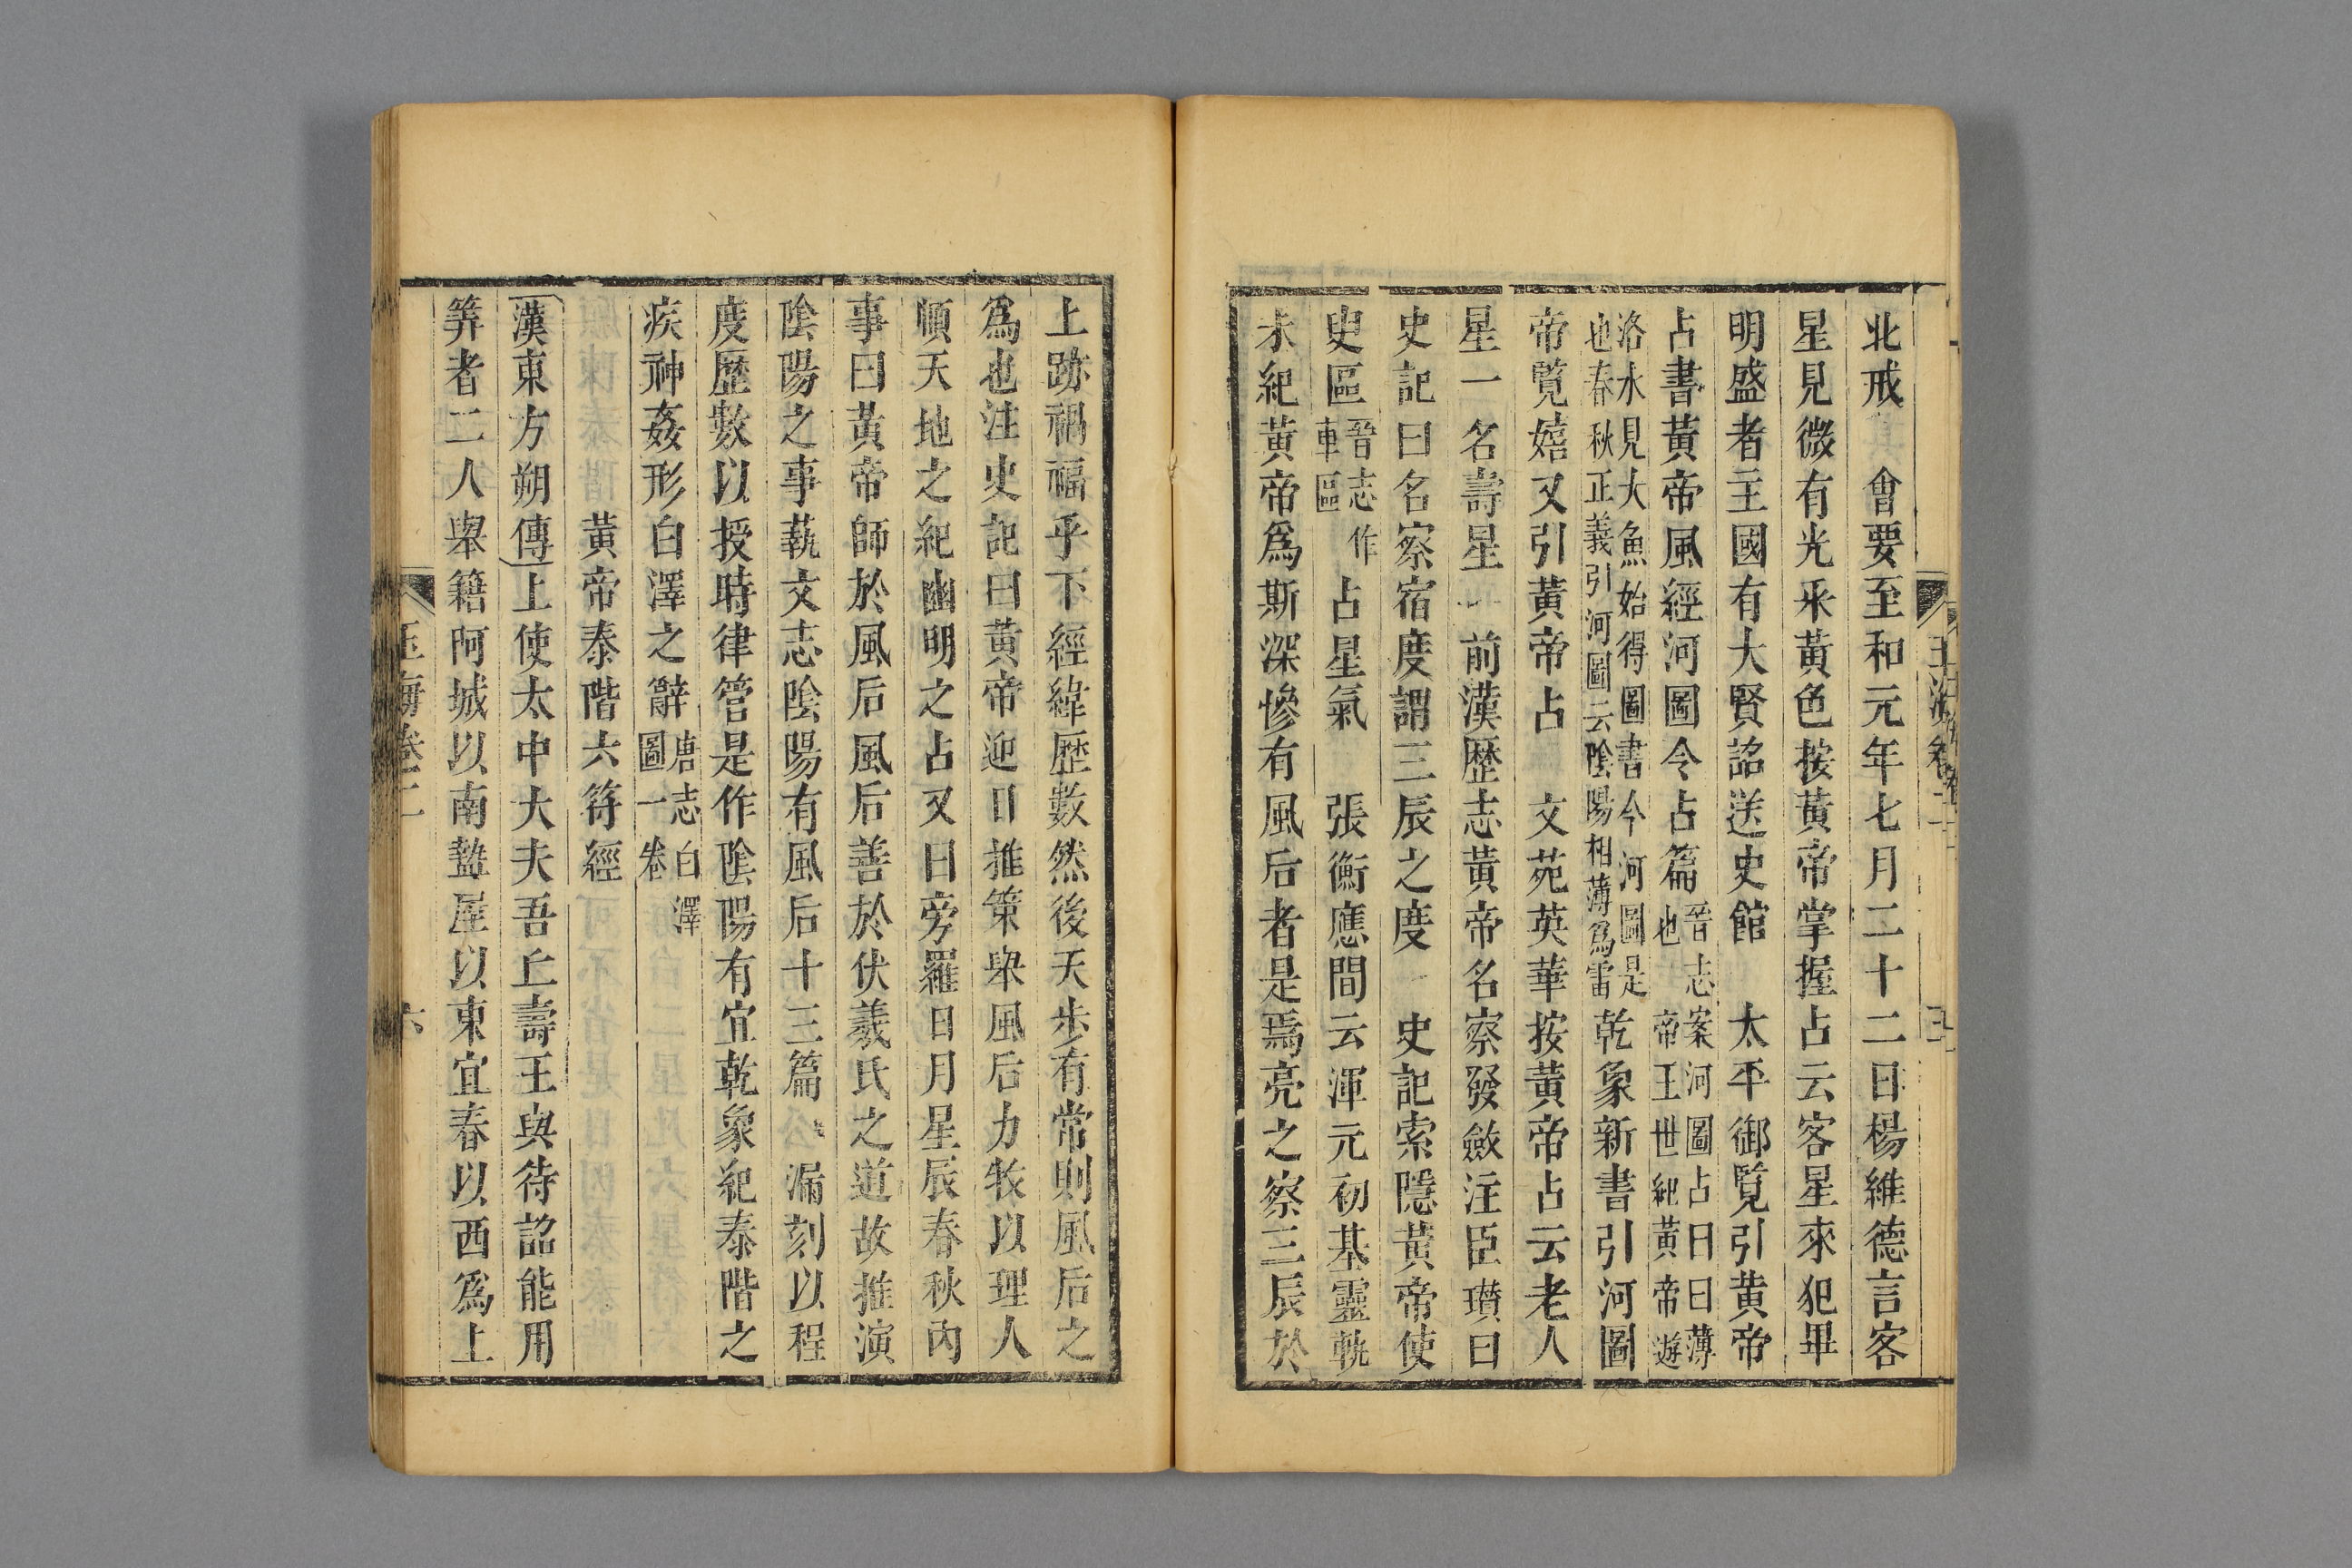 北戒　會要至和元年七月二十二日楊維德言客
星見微有光采黃色按黃帝掌握占云客星來犯畢
明盛者主國有大賢詔送史館　太平御覽引黃帝
占書黃帝風經河圖令占篇晉志案河圖占曰日薄也　帝王世紀黃帝遊
洛水見大魚始得圖書今河圖是也春秋正義引河圖云陰陽相薄爲雷乾象新書引河圖
帝覽嬉又引黃帝占　文苑英華按黃帝占云老人
星一名壽星　前漢歷志黃帝名察發斂注臣瓚曰
史記曰名察宿度謂三辰之度　史記索隱黃帝使
臾區晉志作車區占星氣　張衡應間云渾元初基靈軌
未紀黃帝爲斯深慘有風后者是焉亮之察三辰於
上跡禍福乎下經緯歷數然後天步有常則風后之
爲也注史記曰黃帝迎日推策舉風后力牧以理人
順天地之紀幽明之占又曰旁羅日月星辰春秋內
事曰黃帝師於風后風后善於伏羲氏之道故推演
陰陽之事藝文志陰陽有風后十三篇　漏刻以程
度歷數以授時律管是作陰陽有宜乾象紀泰階之
疾神姦形白澤之辭唐志白澤圖一卷
黃帝泰階六符經
漢東方朔傳上使太中大夫吾丘壽王與待詔能用
筭者二人舉籍阿城以南盩厔以東宜春以西爲上
玉海卷二
六